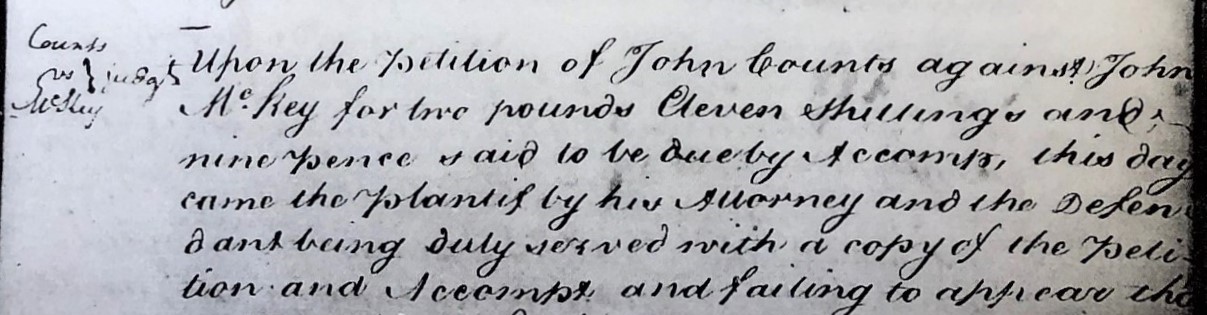 Counts
vs } judgt
McKey
Upon the Petition of John Counts against John
McKey for two pounds Eleven Shillings and
nine pence said to be due by Accomp, this day
came the Plantif by his Attorney and the Defen
dant being duly served with a copy of the Peti-
tion and Accompt and failing to appear tho